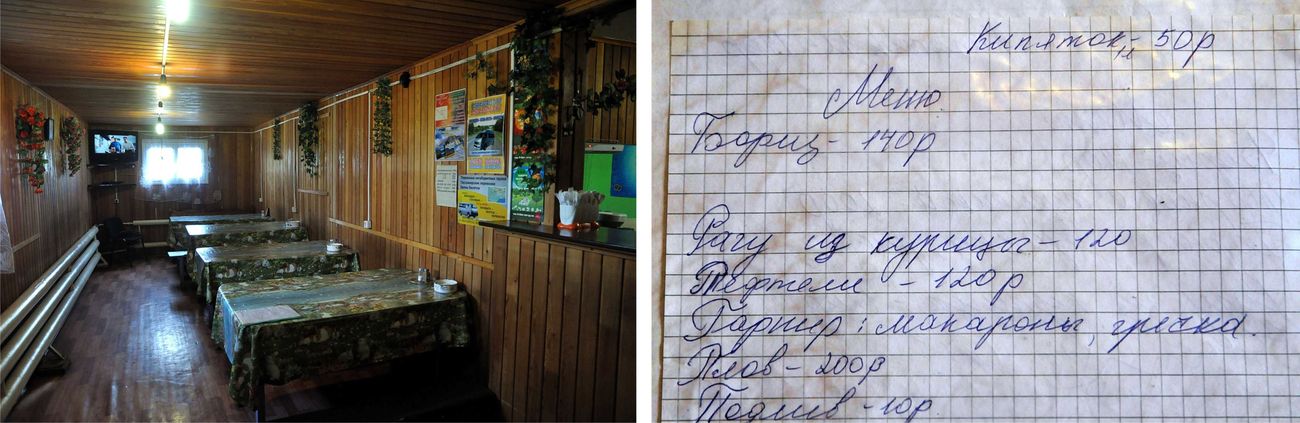 Кипяток 1л - 50р
Меню
Борщ - 140р
Рагу из курицы - 120
Тефтели - 120р
Гарнир: макароны, гречка.
Плов - 200р
Подлив - 10р